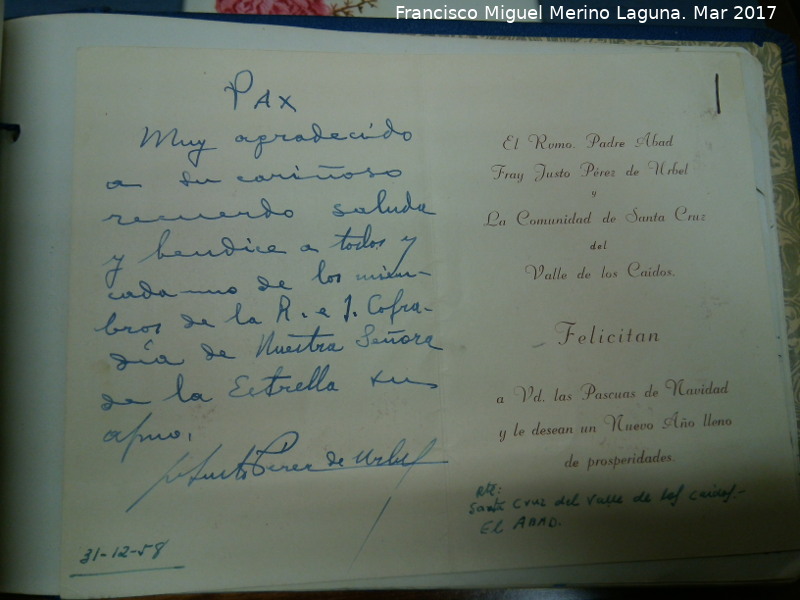 Francisco Miguel Merino Laguna. Mar 2017
PAX
Muy agradecido
a su cariñoso
recuerdo saluda
y bendice a todos y
cada uno de los miem-
bros de la R. e I. Cofra-
día de Nuestra Señora
de la Estrella su
afmo.
Justo Perez de Urbel
31-12-58
El Rvmo. Padre Abad
Fray Justo Pérez de Urbel
y
La Comunidad de Santa Cruz
del
Valle de los Caidos.
Felicitan
a Vd. las Pascuas de Navidad
y le desean un Nuevo Año lleno
de prosperidades.
Rte:
Santa Cruz del Valle de los Caidos.-
El ABAD.